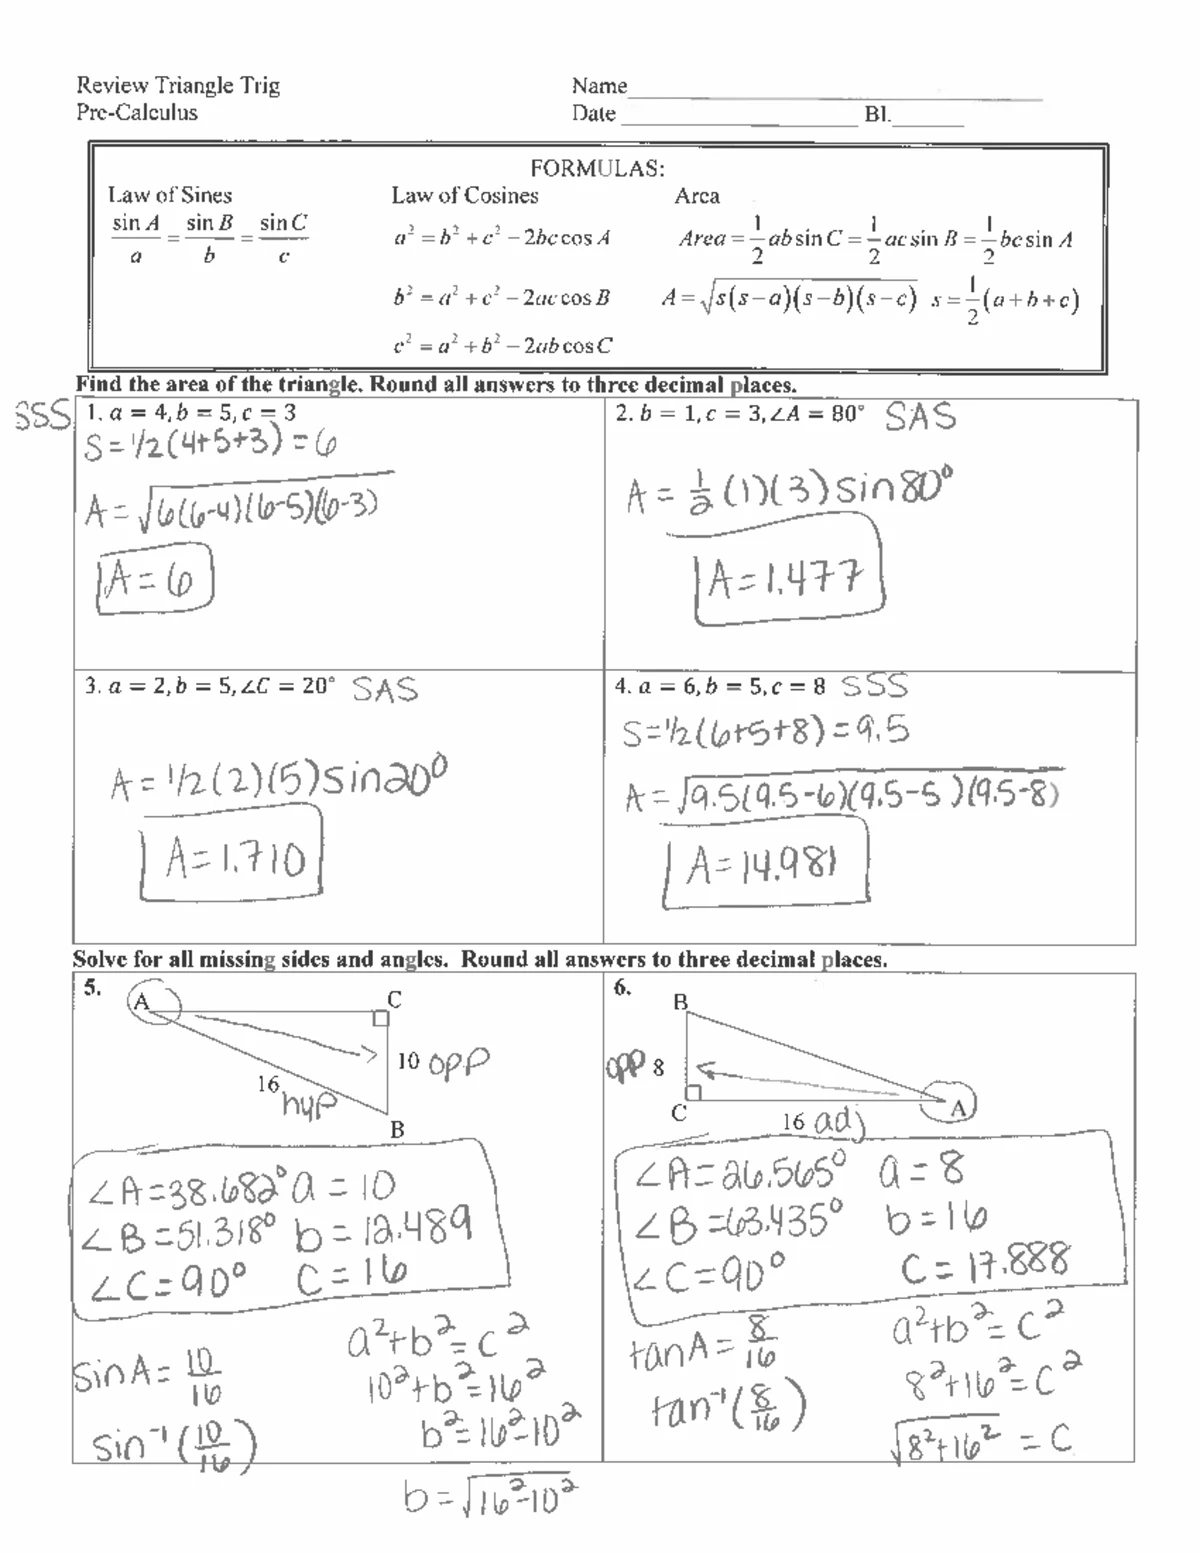 Review Triangle Trig Name
Pre-Calculus Date Bl.
FORMULAS:
Law of Sines Law of Cosines Area
sin A / a = sin B / b = sin C / c
a² = b² + c² − 2bc cos A
Area = 1/2 ab sin C = 1/2 ac sin B = 1/2 bc sin A
b² = a² + c² − 2ac cos B
A = √s(s−a)(s−b)(s−c) s = 1/2 (a+b+c)
c² = a² + b² − 2ab cos C
Find the area of the triangle. Round all answers to three decimal places.
SSS 1. a = 4, b = 5, c = 3
S = 1/2(4+5+3) = 6
A = √6(6-4)(6-5)(6-3)
A = 6
2. b = 1, c = 3, ∠A = 80° SAS
A = 1/2 (1)(3) sin 80°
A = 1.477
3. a = 2, b = 5, ∠C = 20° SAS
A = 1/2(2)(5) sin 20°
A = 1.710
4. a = 6, b = 5, c = 8 SSS
S = 1/2(6+5+8) = 9.5
A = √9.5(9.5-6)(9.5-5)(9.5-8)
A = 14.981
Solve for all missing sides and angles. Round all answers to three decimal places.
5.
A C
10 opp
16 hyp
B
∠A = 38.682° a = 10
∠B = 51.318° b = 12.489
∠C = 90° C = 16
a² + b² = c²
sin A = 10/16
10² + b² = 16²
sin⁻¹(10/16)
b² = 16² - 10²
b = √16² - 10²
6.
B
opp 8
C 16 adj A
∠A = 26.565° a = 8
∠B = 63.435° b = 16
∠C = 90° C = 17.888
tan A = 8/16
a² + b² = c²
tan⁻¹(8/16)
8² + 16² = c²
√8² + 16² = c